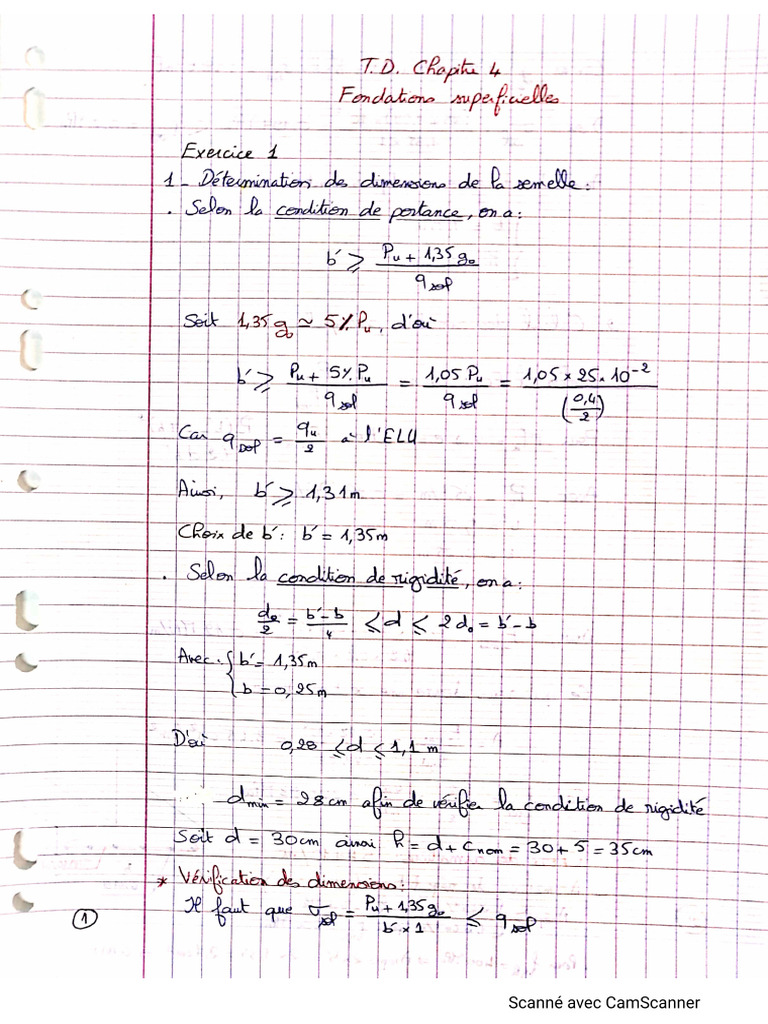 T.D. Chapitre 4
Fondations superficielles
Exercice 1
1 - Détermination des dimensions de la semelle:
. Selon la condition de portance, on a:
b' ⩾ (Pu + 1,35 g₀) / q sol
Soit 1,35 g₀ ≃ 5% Pu, d'où
b' ⩾ (Pu + 5% Pu) / q sol = 1,05 Pu / q sol = 1,05 × 25 × 10⁻² / (0,4/2)
Car q sol = qu/2 à l'ELU
Ainsi, b' ⩾ 1,31m
Choix de b': b' = 1,35m
. Selon la condition de rigidité, on a:
d₀/2 = (b'-b)/4 ⩽ d ⩽ 2 d₀ = b' - b
Avec. { b' = 1,35m
b = 0,25m
D'où 0,28 ⩽ d ⩽ 1,1 m
dmin = 28 cm afin de vérifier la condition de rigidité
Soit d = 30cm ainsi h = d + cnom = 30 + 5 = 35cm
* Vérification des dimensions:
Il faut que σ sol = (Pu + 1,35 g₀) / (b' × 1) ⩽ q sol
1
Scanné avec CamScanner